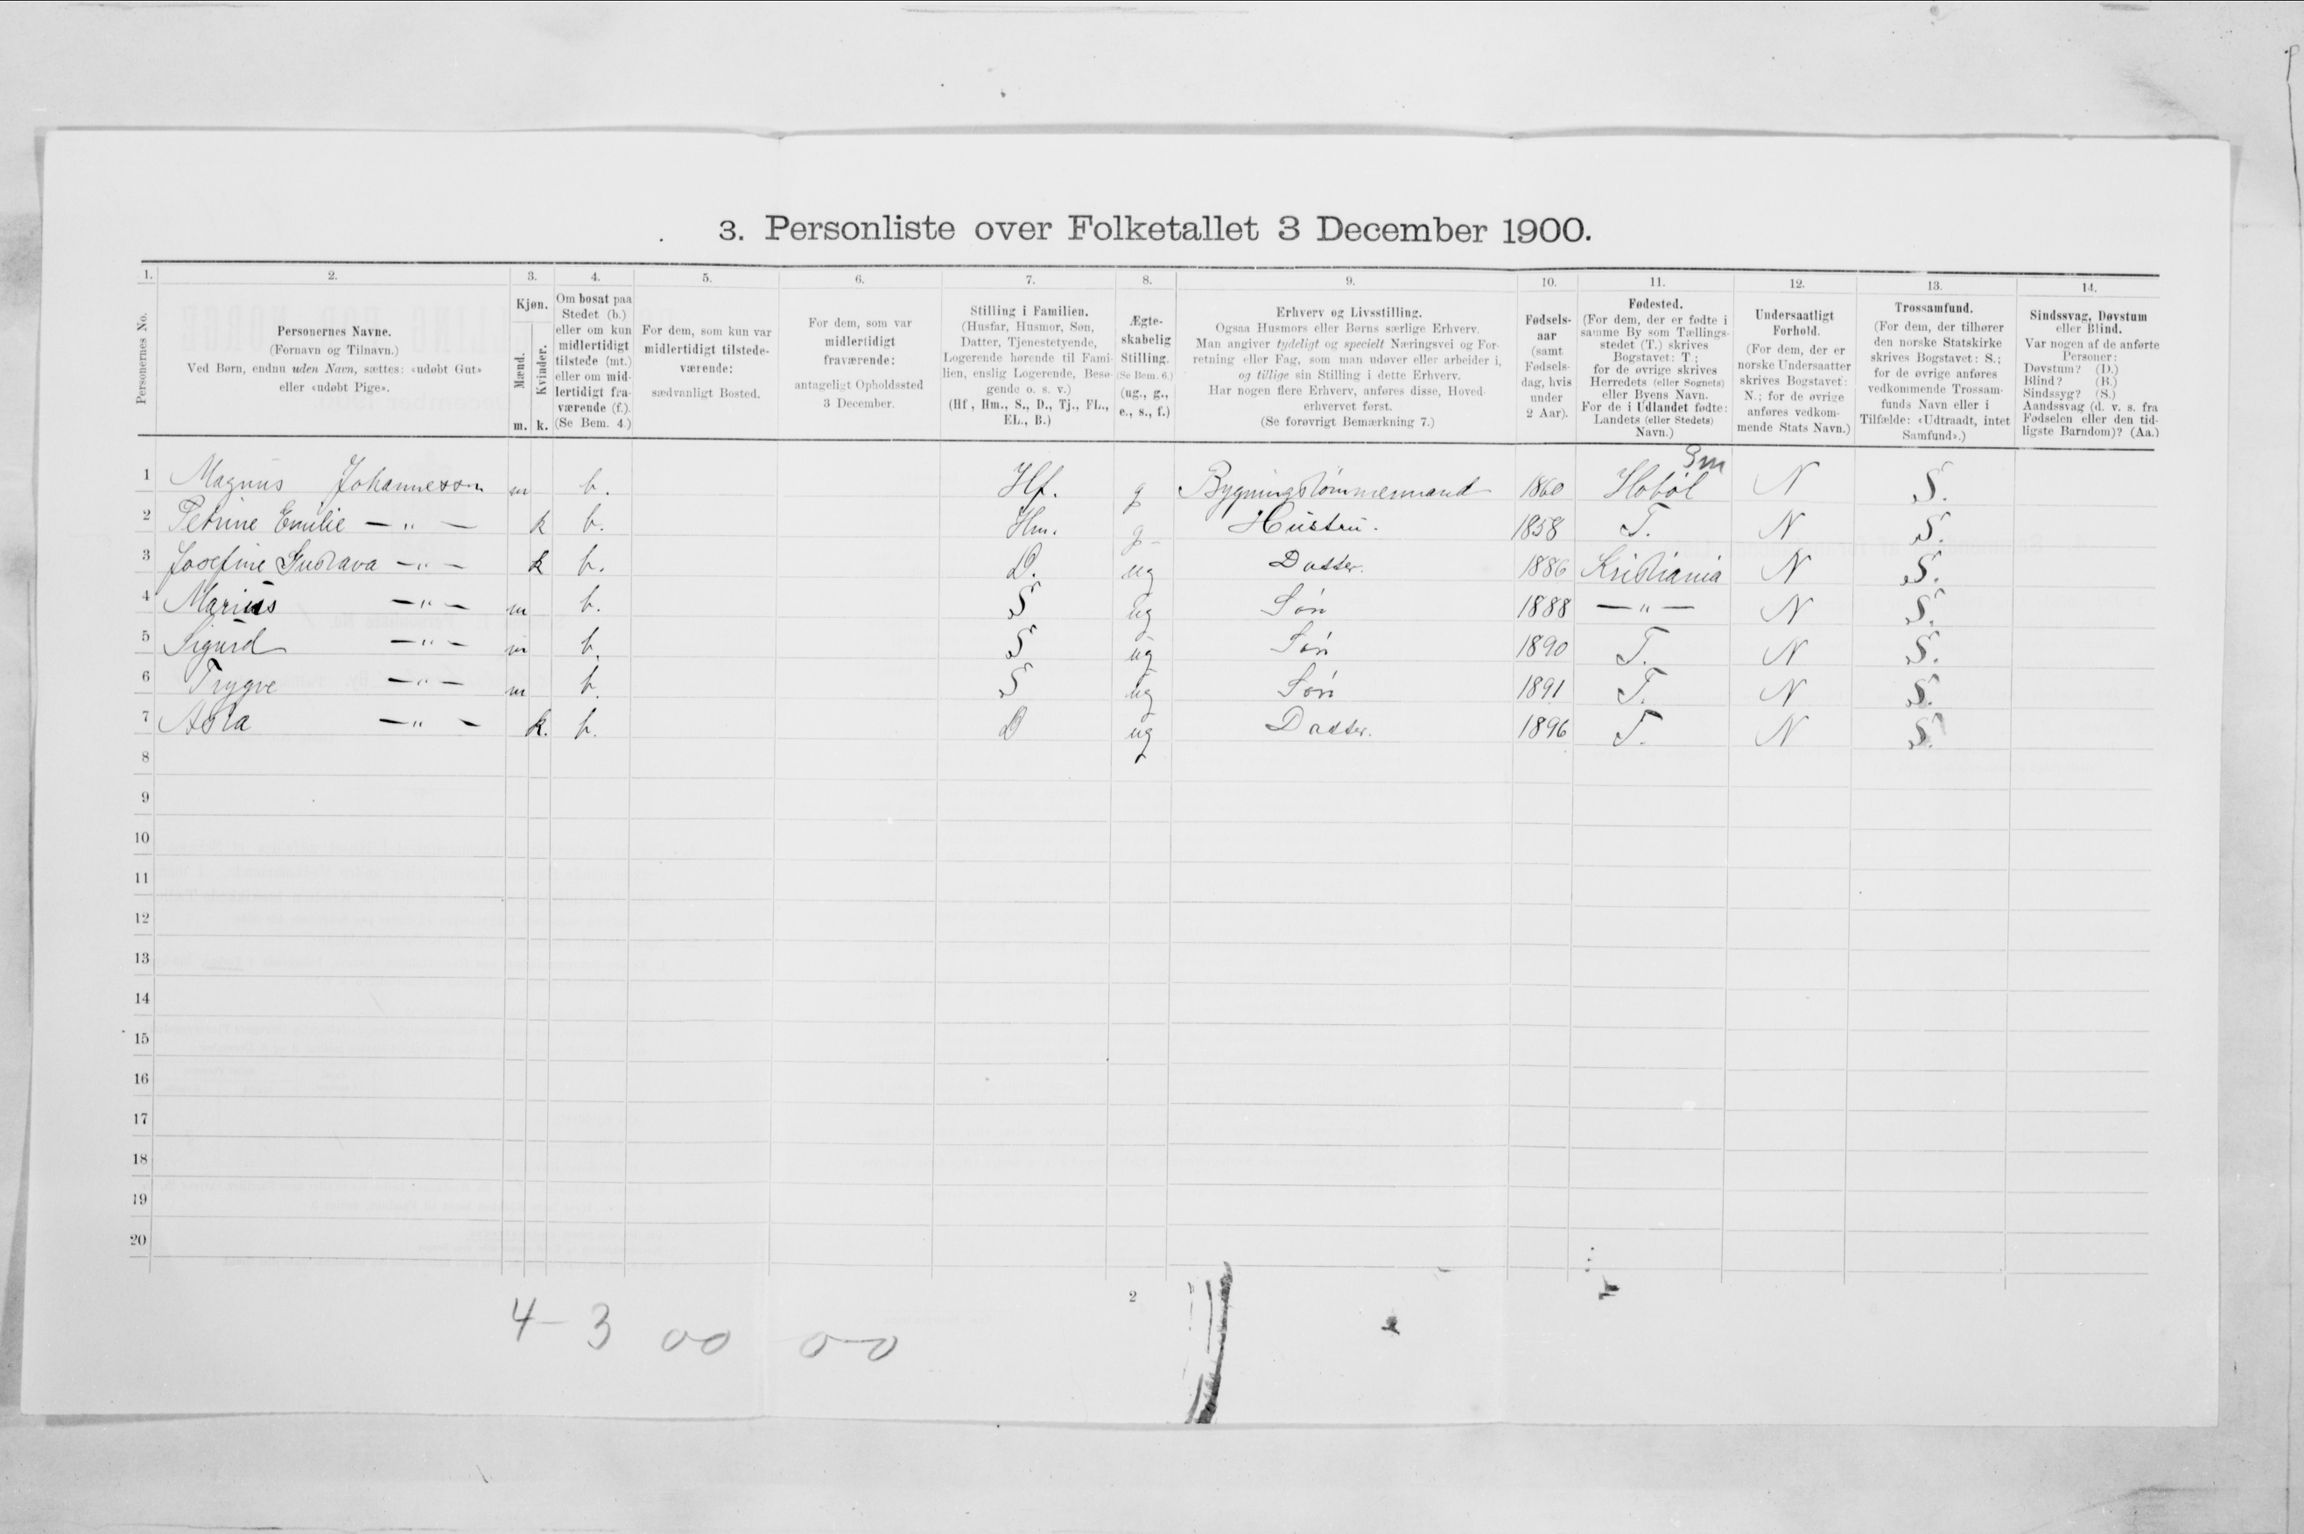 3. Personliste over Folketallet 3 December 1900.
1. 2. 3. 4. 5. 6. 7. 8. 9. 10. 11. 12. 13. 14.
Personernes No.
Personernes Navne.
(Fornavn og Tilnavn.)
Ved Børn, endnu uden Navn, sættes: «udøbt Gut»
eller «udøbt Pige».
Kjøn.
Mænd.
Kvinder.
m. k.
Om bosat paa
Stedet (b.)
eller om kun
midlertidigt
tilstede (mt.)
eller om mid-
lertidigt fra-
værende (f.).
(Se Bem. 4.)
For dem, som kun var
midlertidigt tilstede-
værende:
sædvanligt Bosted.
For dem, som var
midlertidigt
fraværende:
antageligt Opholdssted
3 December.
Stilling i Familien.
(Husfar, Husmor, Søn,
Datter, Tjenestetyende,
Logerende hørende til Fami-
lien, enslig Logerende, Besø-
gende o. s. v.)
(Hf., Hm., S., D., Tj., FL.,
EL., B.)
Ægte-
skabelig
Stilling.
(Se Bem. 6.)
(ug., g.,
e., s., f.)
Erhverv og Livsstilling.
Ogsaa Husmors eller Børns særlige Erhverv.
Man angiver tydeligt og specielt Næringsvei og For-
retning eller Fag, som man udøver eller arbeider i,
og tillige sin Stilling i dette Erhverv.
Har nogen flere Erhverv, anføres disse, Hoved-
erhvervet først.
(Se forøvrigt Bemærkning 7.)
Fødsels-
aar
(samt
Fødsels-
dag, hvis
under
2 Aar).
Fødested.
(For dem, der er fødte i
samme By som Tællings-
stedet (T.) skrives
Bogstavet: T;
for de øvrige skrives
Herredets (eller Sognets)
eller Byens Navn.
For de i Udlandet fødte:
Landets (eller Stedets)
Navn.)
Undersaatligt
Forhold.
(For dem, der er
norske Undersaatter
skrives Bogstavet:
N.; for de øvrige
anføres vedkom-
mende Stats Navn.)
Trossamfund.
(For dem, der tilhører
den norske Statskirke
skrives Bogstavet: S.;
for de øvrige anføres
vedkommende Trossam-
funds Navn eller i
Tilfælde: «Udtraadt, intet
Samfund».)
Sindssvag, Døvstum
eller Blind.
Var nogen af de anførte
Personer:
Døvstum? (D.)
Blind? (B.)
Sindssyg? (S.)
Aandssvag (d. v. s. fra
Fødselen eller den tid-
ligste Barndom)? (Aa.)
Sm
1 Magnus Johannesson m b. Hf. g Bygningstømmermand 1860 Hobøl N S.
2 Petrine Emilie —"— k b. Hm. g Hustru. 1858 T. N S.
3 Josefine Gustava —"— k b. D. ug Datter. 1886 Kristiania N S.
4 Marius —"— m b. S ug Søn 1888 —"— N S.
5 Sigurd —"— m b. S ug Søn 1890 T. N S.
6 Trygve —"— m b. S ug Søn 1891 T. N S.
7 Asta —"— k. b. D ug Datter. 1896 T. N S.
8
9
10
11
12
13
14
15
16
17
18
19
20
2
4 - 3 00 0-0